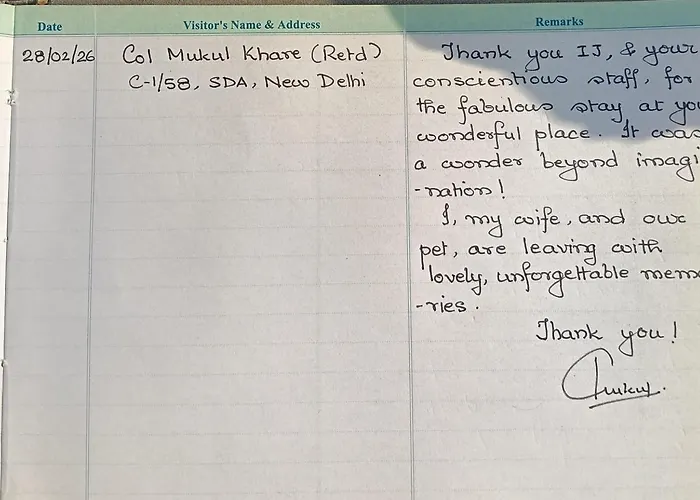 Date Visitor's Name & Address Remarks
28/02/26 Col Mukul Khare (Retd) Thank you IJ, & your
C-1/58, SDA, New Delhi conscientious staff, for
the fabulous stay at you
wonderful place. It was
a wonder beyond imagi
-nation!
I, my wife, and our
pet, are leaving with
lovely, unforgettable memo
-ries.
Thank you!
Mukul.